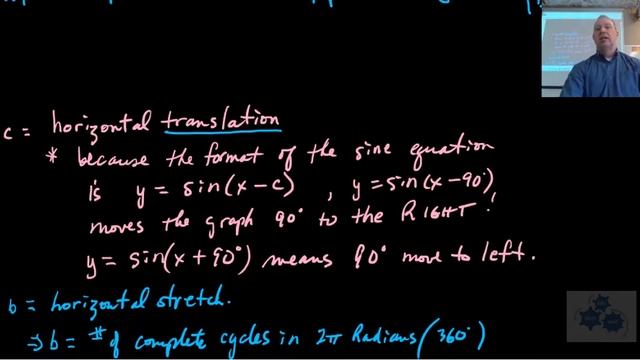 c = horizontal translation
* because the format of the sine equation
is y = sin(x - c) , y = sin(x - 90°)
moves the graph 90° to the RIGHT!
y = sin(x + 90°) means 90° move to left.
b = horizontal stretch.
⇒ b = # of complete cycles in 2π Radians (360°)